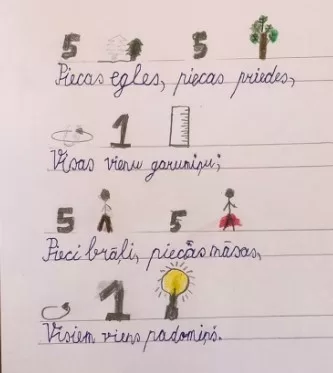 5 5
Piecas egles, piecas priedes,
1
Visas vienu garumiņu;
5 5
Pieci brāļi, piecas māsas,
1
Visiem viens padomiņš.